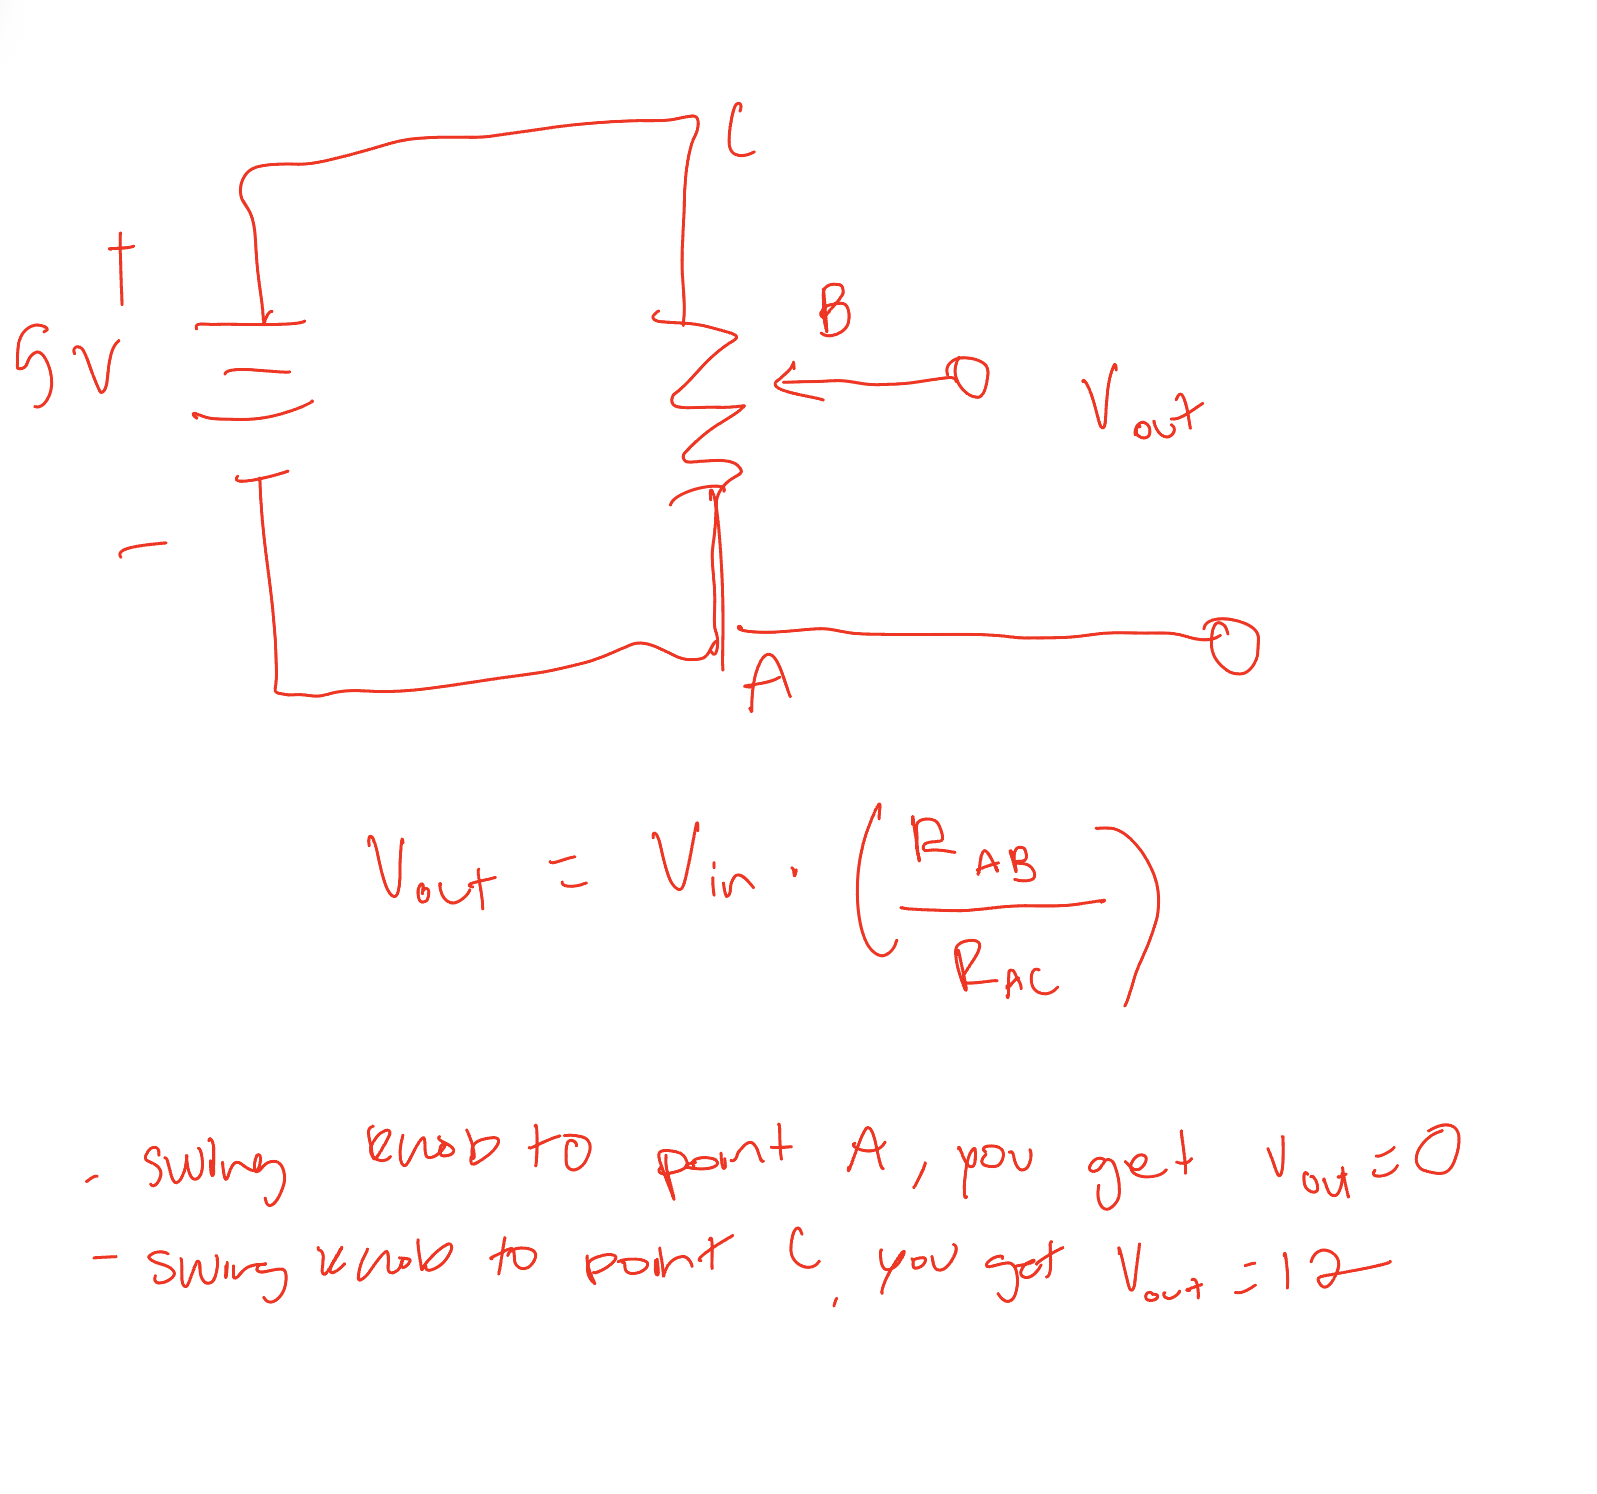 C
+
B
5V
Vout
-
A
Vout = Vin · (RAB / RAC)
- swing knob to point A, you get Vout = 0
- swing knob to point C, you get Vout = 12